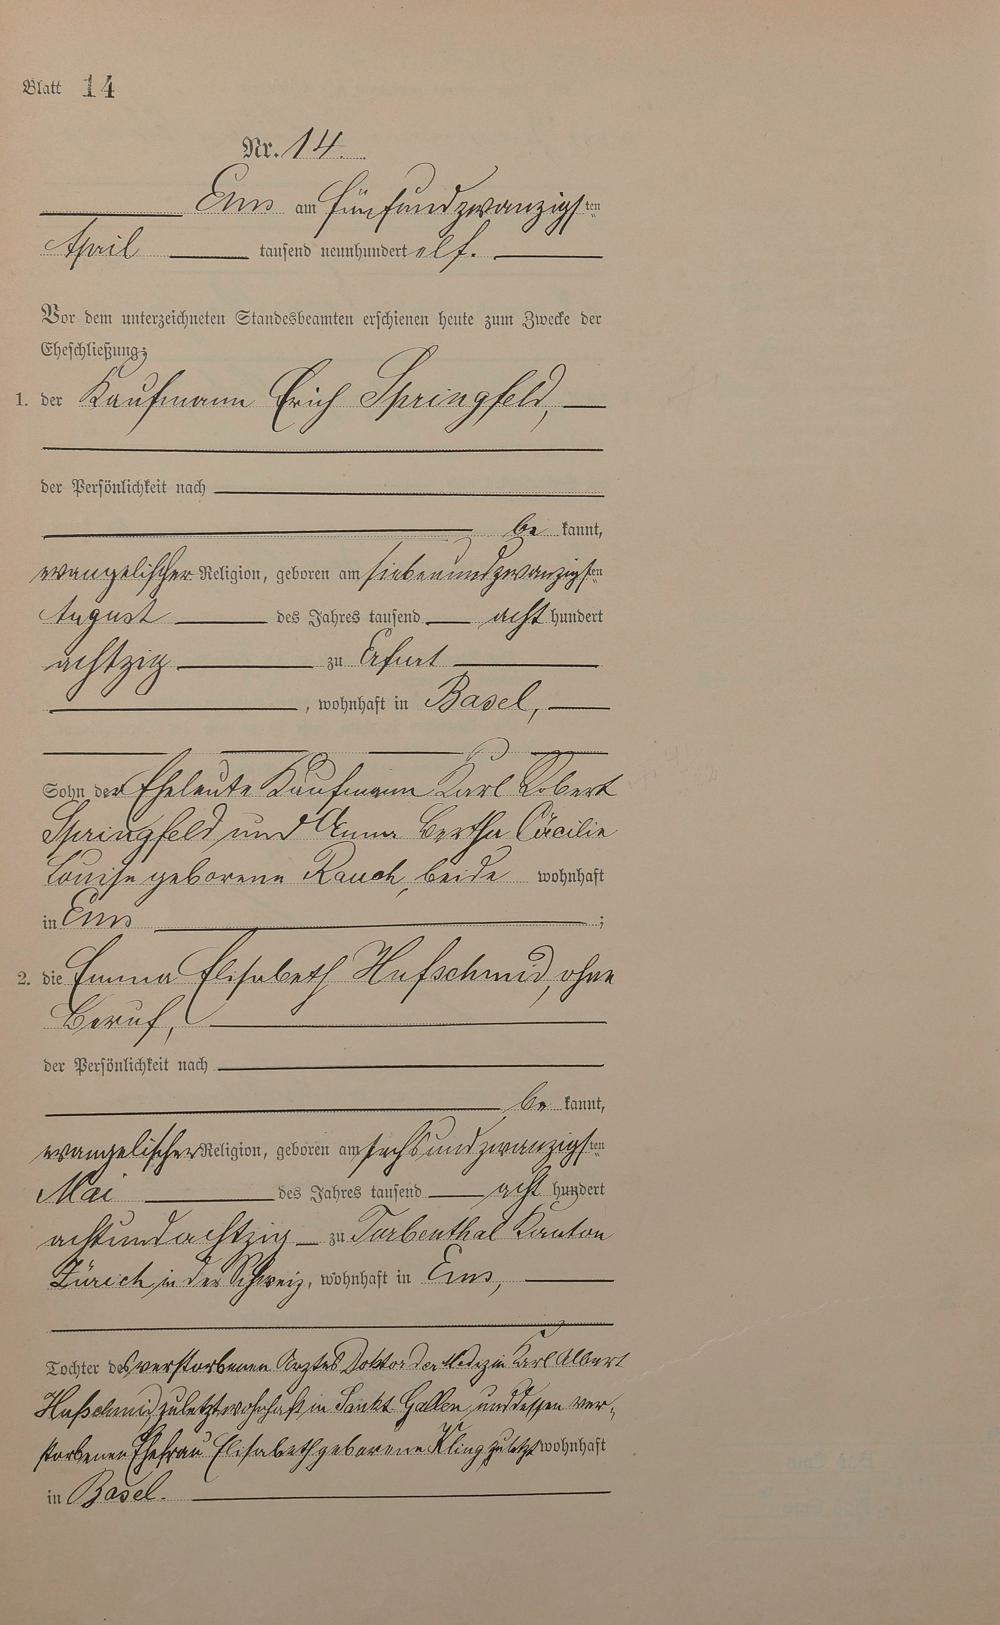 Blatt 14
Nr. 14.
Ems am fünfundzwanzigsten
April tausend neunhundert elf.
Vor dem unterzeichneten Standesbeamten erschienen heute zum Zwecke der
Eheschließung:
1. der Kaufmann Erich Springfeld,
der Persönlichkeit nach
be kannt,
evangelischer Religion, geboren am siebenundzwanzigsten
August des Jahres tausend acht hundert
achtzig zu Erfurt
, wohnhaft in Basel,
Sohn der Eheleute Kaufmann Karl Robert
Springfeld und Anna Bertha Cäcilie
Louise geborene Rauch, beide wohnhaft
in Ems ;
2. die Emma Elisabeth Hufschmid, ohne
Beruf,
der Persönlichkeit nach
be kannt,
evangelischer Religion, geboren am sechsundzwanzigsten
Mai des Jahres tausend acht hundert
achtundachtzig zu Turbenthal Kanton
Zürich in der Schweiz, wohnhaft in Ems,
Tochter des verstorbenen Arztes Doktor der Medizin Karl Albert
Hufschmid zuletzt wohnhaft in Sankt Gallen und dessen ver-
storbenen Ehefrau Elisabeth geborene Kling, zuletzt wohnhaft
in Basel.